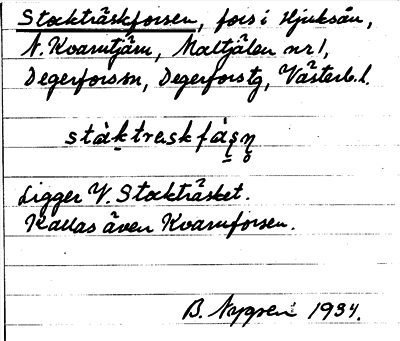 Stockträskforsen, fors i Hjuksån,
N. Kvarntjärn, Maltjälen nr 1,
Degerfors sn, Degerfors tg, Västerb. l.
stàktrɛskfàʂn̥
Ligger V. Stockträsket.
Kallas även Kvarnforsen.
B. Nygren 1934.